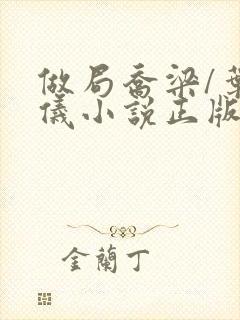 做局喬梁/葉
儀小說正版
金蘭丁